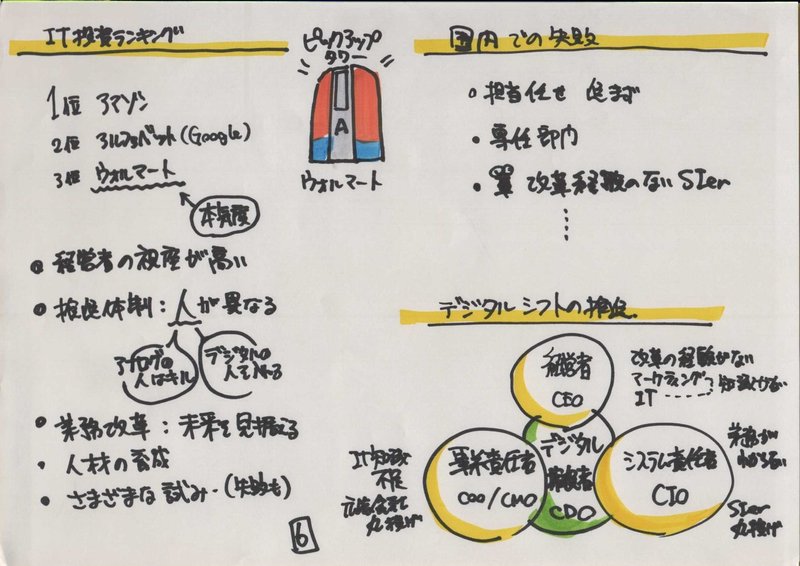 IT投資ランキング
1位 アマゾン
2位 アルファベット(Google)
3位 ウォルマート
本気度
ピックアップ
タワー
A
ウォルマート
経営者の視座が高い
推進体制:人が異なる
アナログの
人はキル
デジタルの
人で
業務改革:未来を見据える
人材の育成
さまざまな試み(失敗も)
6
国内での失敗
担当任せ 進まず
専任部門
改革経験のないSIer
デジタルシフトの推進
経営者
CEO
改革の経験がない
マーケティング
IT
知識
事業責任者
COO/CMO
IT知識
不足
広告会社
丸投げ
デジタル
責任者
CDO
システム責任者
CIO
業務が
わからない
SIer
丸投げ